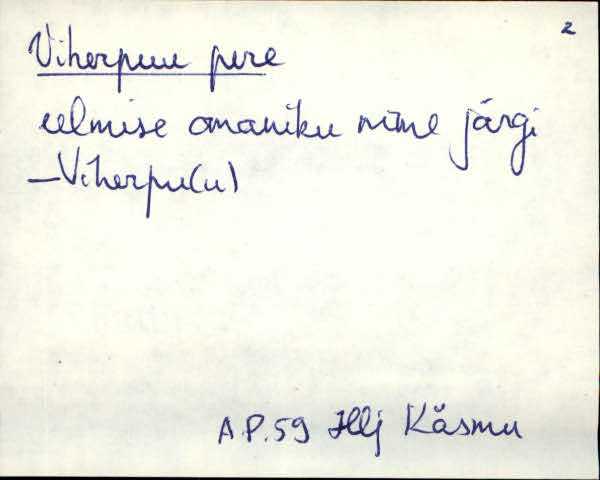 2
Viherpuu pere
eelmise omaniku nime järgi
– Viherpu(u)
A.P.59 Hlj Käsmu